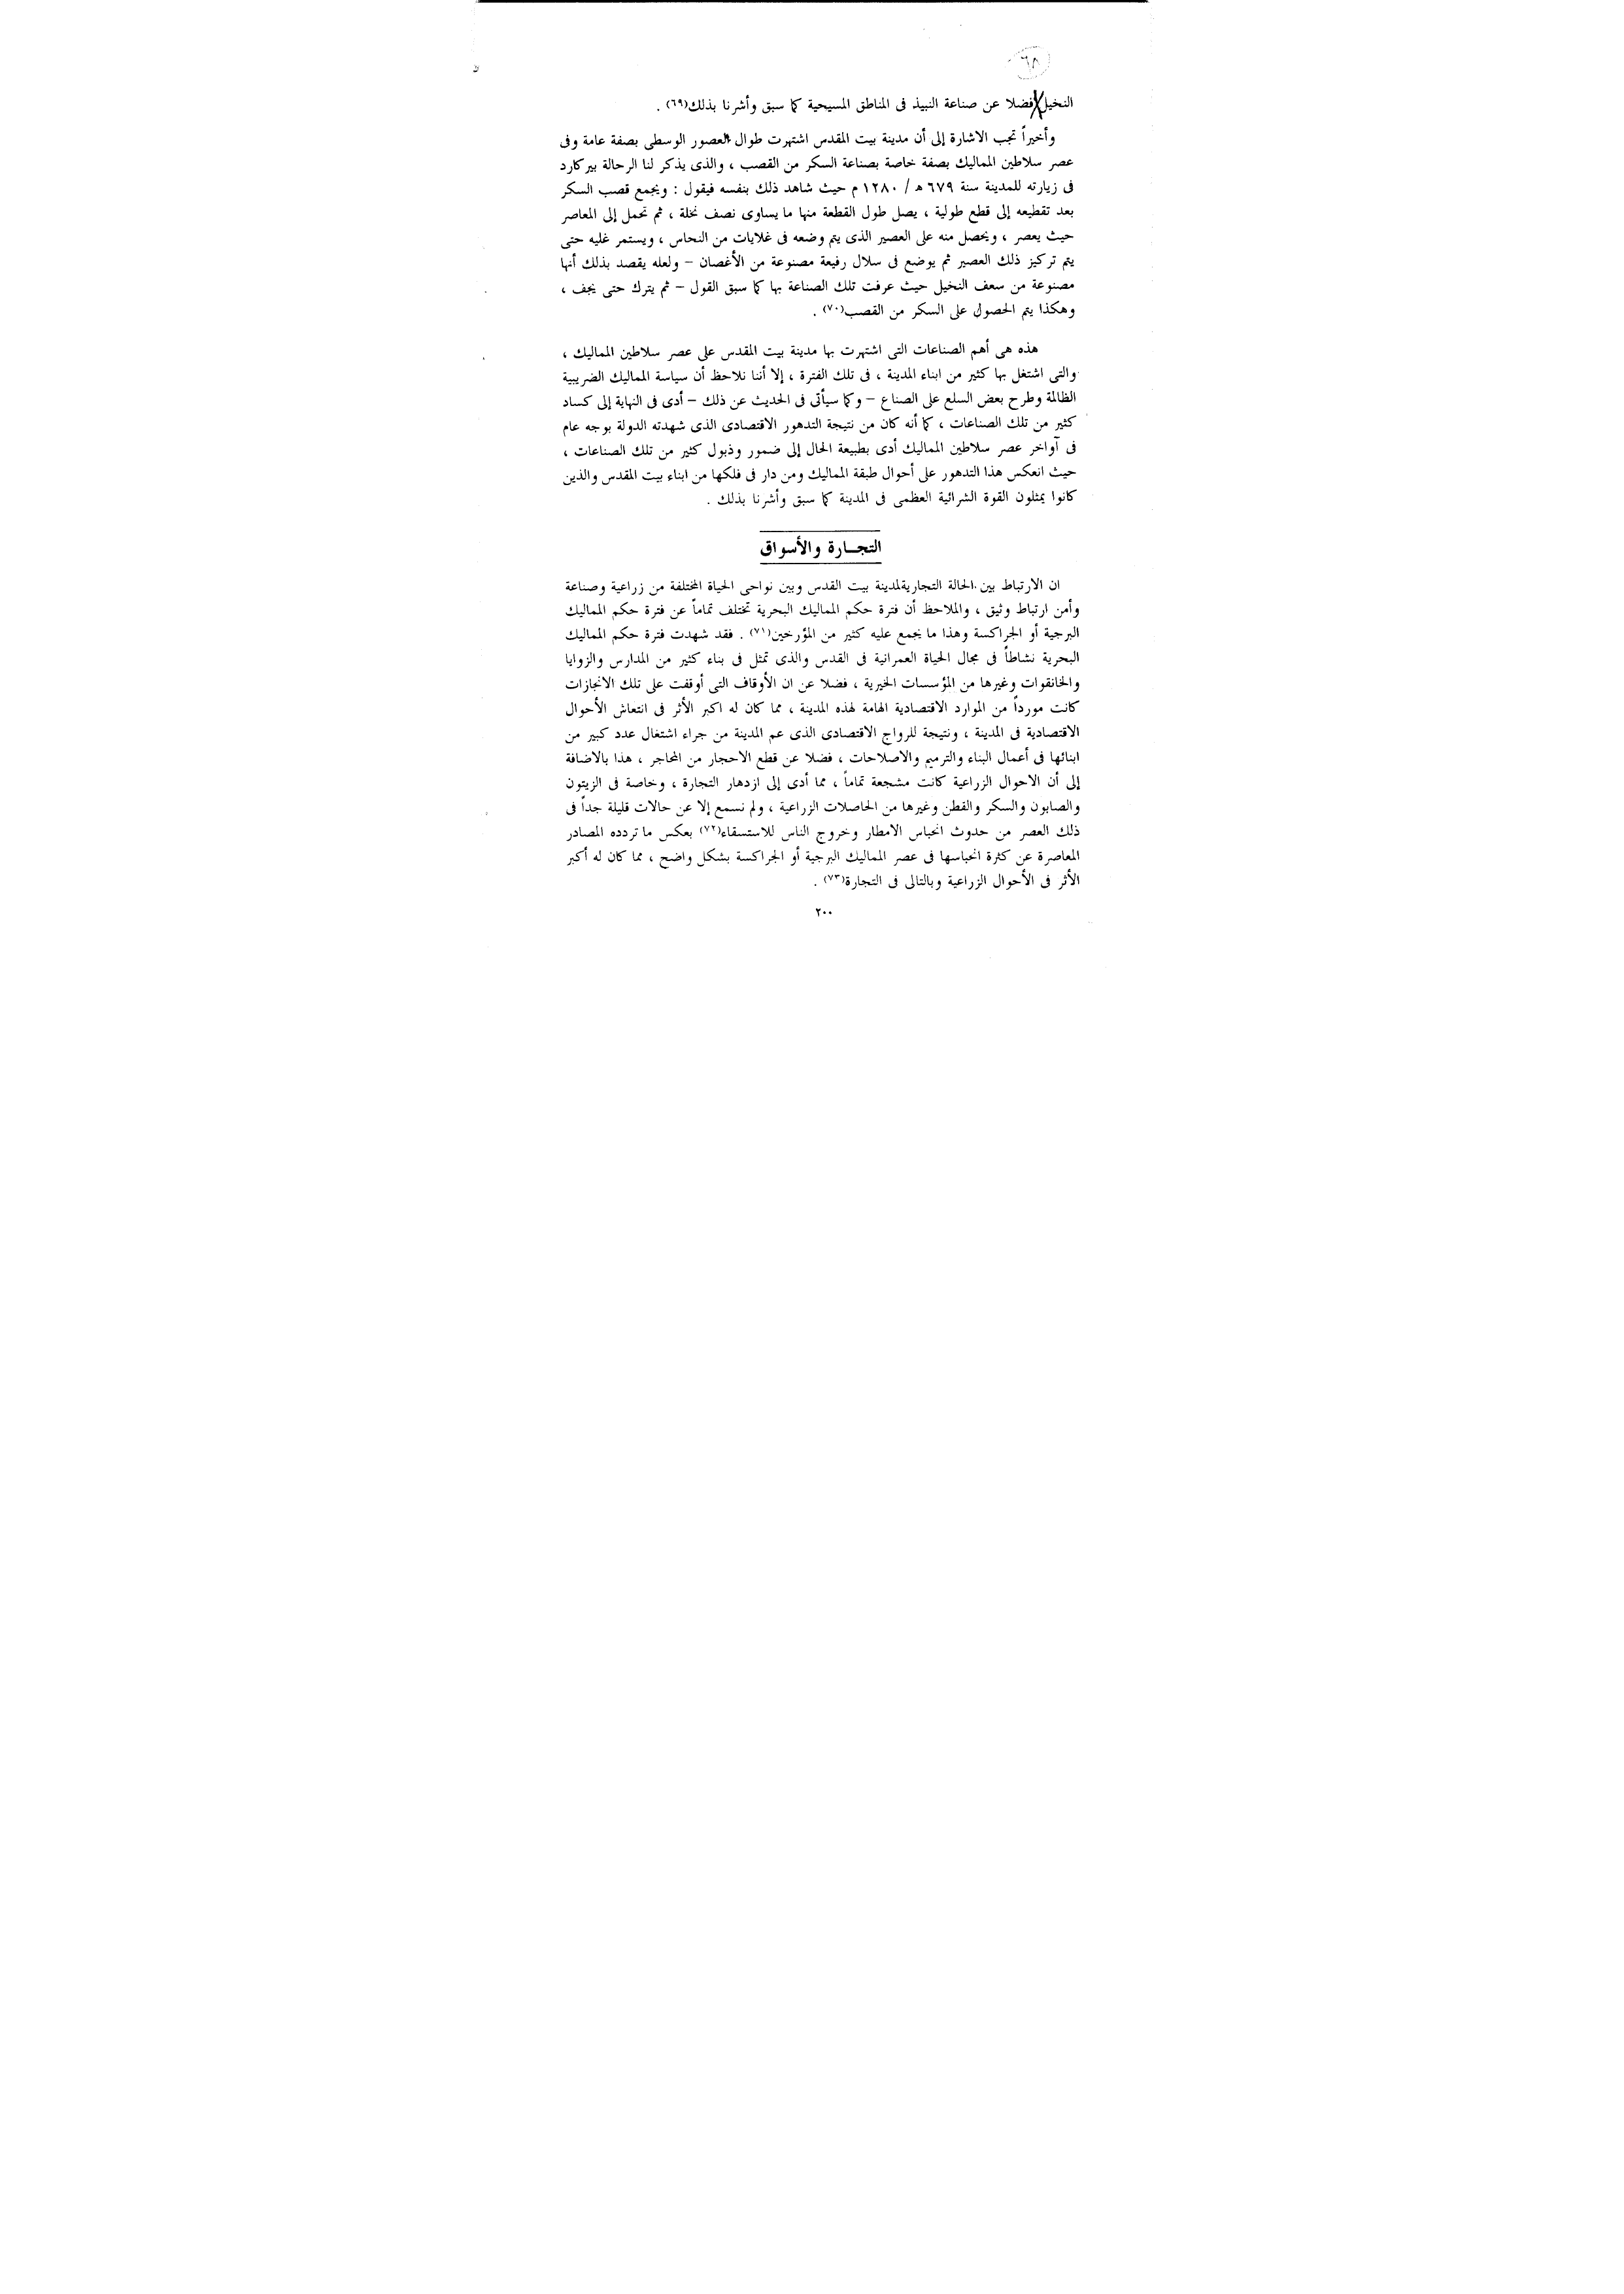 ٦٨
النخيل فضلا عن صناعة النبيذ فى المناطق المسيحية كما سبق وأشرنا بذلك(٦٩) .
وأخيراً تجب الاشارة إلى أن مدينة بيت المقدس اشتهرت طوال العصور الوسطى بصفة عامة وفى
عصر سلاطين المماليك بصفة خاصة بصناعة السكر من القصب ، والذى يذكر لنا الرحالة بيركارد
فى زيارته للمدينة سنة ٦٧٩ هـ / ١٢٨٠ م حيث شاهد ذلك بنفسه فيقول : ويجمع قصب السكر
بعد تقطيعه إلى قطع طولية ، يصل طول القطعة منها ما يساوى نصف نخلة ، ثم تحمل إلى المعاصر
حيث يعصر ، ويحصل منه على العصير الذى يتم وضعه فى غلايات من النحاس ، ويستمر غليه حتى
يتم تركيز ذلك العصير ثم يوضع فى سلال رفيعة مصنوعة من الأغصان – ولعله يقصد بذلك أنها
مصنوعة من سعف النخيل حيث عرفت تلك الصناعة بها كما سبق القول – ثم يترك حتى يجف ،
وهكذا يتم الحصول على السكر من القصب(٧٠) .
هذه هى أهم الصناعات التى اشتهرت بها مدينة بيت المقدس على عصر سلاطين المماليك ،
والتى اشتغل بها كثير من ابناء المدينة ، فى تلك الفترة ، إلا أننا نلاحظ أن سياسة المماليك الضريبية
الظالمة وطرح بعض السلع على الصناع – وكما سيأتى فى الحديث عن ذلك – أدى فى النهاية إلى كساد
كثير من تلك الصناعات ، كما أنه كان من نتيجة التدهور الاقتصادى الذى شهدته الدولة بوجه عام
فى آواخر عصر سلاطين المماليك أدى بطبيعة الحال إلى ضمور وذبول كثير من تلك الصناعات ،
حيث انعكس هذا التدهور على أحوال طبقة المماليك ومن دار فى فلكها من ابناء بيت المقدس والذين
كانوا يمثلون القوة الشرائية العظمى فى المدينة كما سبق وأشرنا بذلك .
التجــارة والأسواق
ان الارتباط بين الحالة التجاريةلمدينة بيت القدس وبين نواحى الحياة المختلفة من زراعية وصناعة
وأمن ارتباط وثيق ، والملاحظ أن فترة حكم المماليك البحرية تختلف تماماً عن فترة حكم المماليك
البرجية أو الجراكسة وهذا ما يجمع عليه كثير من المؤرخين(٧١) . فقد شهدت فترة حكم المماليك
البحرية نشاطاً فى مجال الحياة العمرانية فى القدس والذى تمثل فى بناء كثير من المدارس والزوايا
والخانقوات وغيرها من المؤسسات الخيرية ، فضلا عن ان الأوقاف التى أوقفت على تلك الانجازات
كانت مورداً من الموارد الاقتصادية الهامة لهذه المدينة ، مما كان له اكبر الأثر فى انتعاش الأحوال
الاقتصادية فى المدينة ، ونتيجة للرواج الاقتصادى الذى عم المدينة من جراء اشتغال عدد كبير من
ابنائها فى أعمال البناء والترميم والاصلاحات ، فضلا عن قطع الاحجار من المحاجر ، هذا بالاضافة
إلى أن الاحوال الزراعية كانت مشجعة تماماً ، مما أدى إلى ازدهار التجارة ، وخاصة فى الزيتون
والصابون والسكر والقطن وغيرها من الحاصلات الزراعية ، ولم نسمع إلا عن حالات قليلة جداً فى
ذلك العصر من حدوث انحباس الامطار وخروج الناس للاستسقاء(٧٢) بعكس ما تردده المصادر
المعاصرة عن كثرة انحباسها فى عصر المماليك البرجية أو الجراكسة بشكل واضح ، مما كان له أكبر
الأثر فى الأحوال الزراعية وبالتالى فى التجارة(٧٣) .
٢٠٠